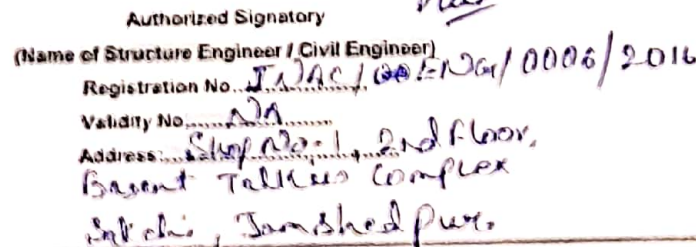 Authorized Signatory
(Name of Structure Engineer / Civil Engineer)
Registration No. JNAC/ENG/0006/2016
Validity No. NA
Address: Shop No-1, 2nd Floor,
Basant Talkies Complex
Sakchi, Jamshedpur.